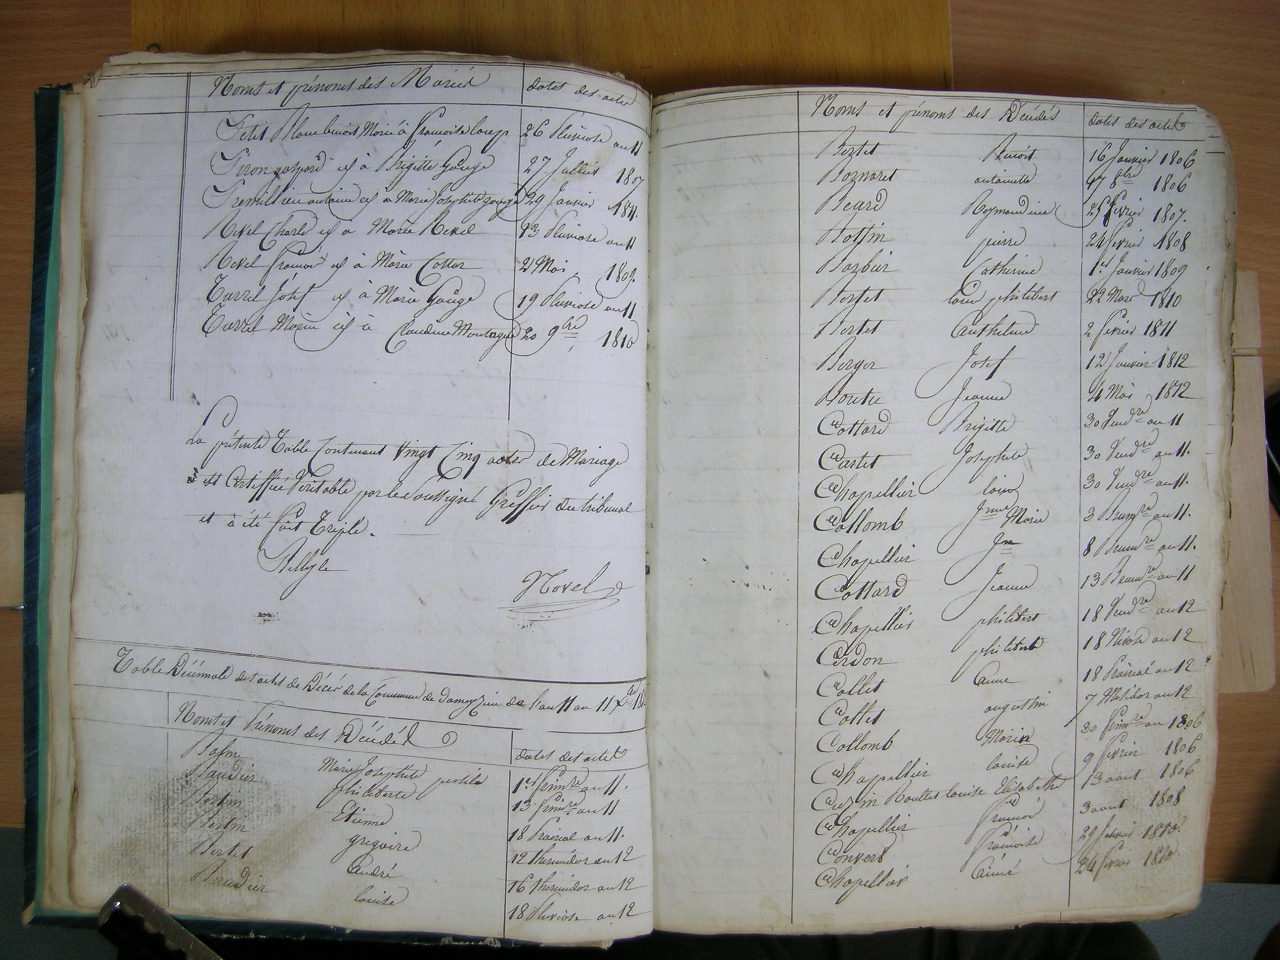 Noms et prénoms des Mariés dates des actes
Petit Marie à françoise loup 26 Pluviose an 11
id à Brigitte Gouge 27 Juillet 1807
id à Marie Josephte gouge 29 Janvier 1811
Revel Charle id à Marie Revel 23 Pluviose an 11
Revel françois id à Marie Cottar 2 Mai 1809
Tavel Josef id à Marie Gouge 19 Pluviose an 11
Tavel Marin id à Claudine Montagne 20 9bre 1810
La présente Table Contenant Vingt Cinq actes de Mariage
est Certiffiée Véritable par le Soussigné Greffier du tribunal
et à été fait Triple.
Novel
Table Décennale des actes de Décés de la Commune de de l'an 11 au
Noms et Prénoms des Décédés dates des actes
Marie Josephte 1er frimre an 11.
philiberte 13 frimre an 11
Etienne 18 Prairial an 11.
Bertin grégoire 12 thermidor an 12
Bertet André 16 thermidor an 12
Baudier louise 18 Pluviose an 12
Noms et prénoms des Décédés dates des actes
Benoit 16 Janvier 1806
antoinette 17 8bre 1806
Beard Raymondine 25 fevrier 1807.
Bottin pierre 24 fevrier 1808
Barbier Catherine 1er Janvier 1809
Bertet louis philibert 22 Mars 1810
Bertet Anthelme 2 fevrier 1811
Berger Josef 12 Janvier 1812
Jeanne 4 Mai 1812
Cottard Brigitte 30 Vendre an 11
Cartet Josephte 30 Vendre an 11.
Chapellier louis 30 Vendre an 11.
Collomb Jnne Marie 3 Brumre an 11.
Chapellier Jn 8 Brumre an 11.
Cottard Jeanne 13 Brumre an 11
Chapellier philibert 18 Vendre an 12
Cerdon philibert 18 Nivose an 12
Collet Anne 18 Prairial an 12
Collet augustin 7 Méssidor an 12
Collomb Marie 30 frimre an 1806
Chapellier louise 9 fevrier 1806
Cuzin Boullet louise Elisabethe 13 aout 1806
Chapellier françois 3 aout 1808
Convert françoise 29 fevrier 1810
Chapellier Aimé 24 fevrier 1810